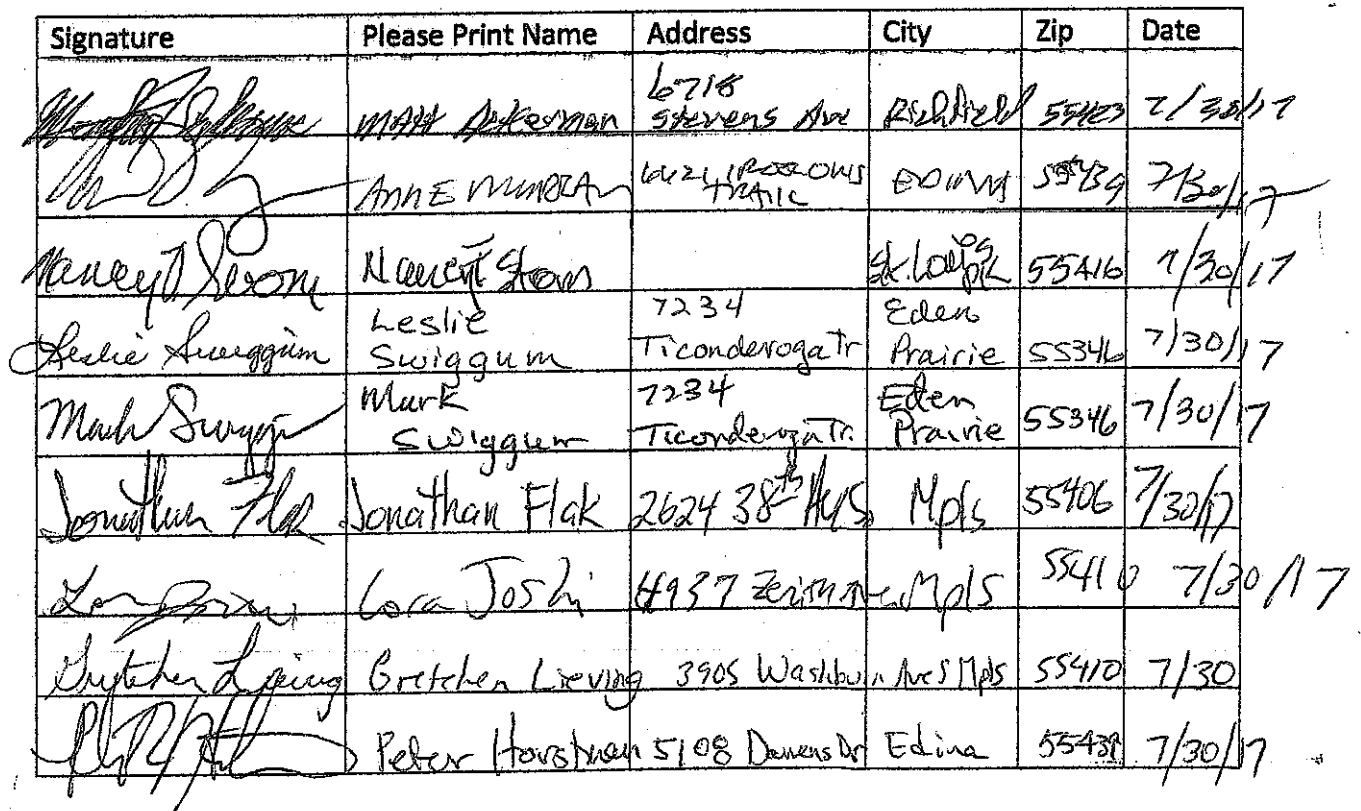 Signature Please Print Name Address City Zip Date
6718
Matt Ackerman Stevens Ave Richfield 55423 7/30/17
Anne 6621 Trail Edina 55439 7/30/17
Nancy St. Louis Pk 55416 7/30/17
Leslie 7234 Eden
Leslie Swiggum Swiggum Ticonderoga Tr Prairie 55346 7/30/17
Mark 7234 Eden
Mark Swiggum Swiggum Ticonderoga Tr. Prairie 55346 7/30/17
Jonathan Flak Jonathan Flak 2624 38th Av S Mpls 55406 7/30/17
Lora Joshi 4937 Zenith Ave Mpls 55410 7/30/17
Gretchen Lieving Gretchen Lieving 3905 Washburn Ave S Mpls 55410 7/30
Peter Horstman 5108 Dr Edina 55439 7/30/17